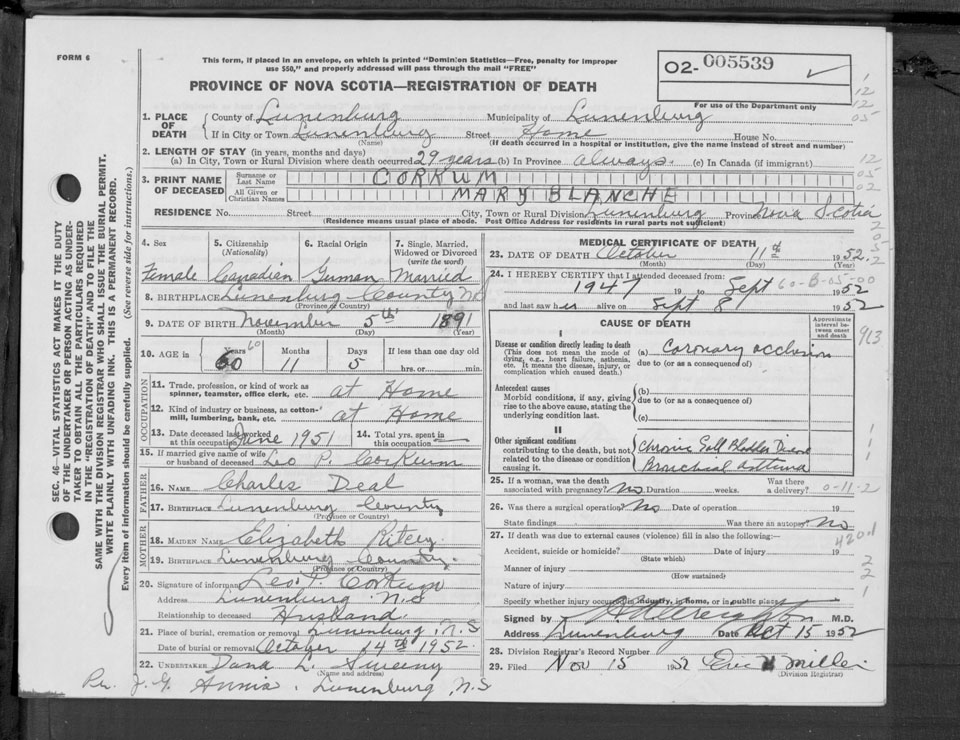 FORM 6
This form, if placed in an envelope, on which is printed "Dominion Statistics—Free, penalty for improper
use $50," and properly addressed will pass through the mail "FREE"
PROVINCE OF NOVA SCOTIA—REGISTRATION OF DEATH
02- 005539
For use of the Department only
SEC. 46—VITAL STATISTICS ACT MAKES IT THE DUTY
OF THE UNDERTAKER OR PERSON ACTING AS UNDER-
TAKER TO OBTAIN ALL THE PARTICULARS REQUIRED
IN THE "REGISTRATION OF DEATH" AND TO FILE THE
SAME WITH THE DIVISION REGISTRAR WHO SHALL ISSUE THE BURIAL PERMIT.
WRITE PLAINLY WITH UNFADING INK. THIS IS A PERMANENT RECORD.
Every item of information should be carefully supplied. (See reverse side for instructions.)
1. PLACE OF DEATH
County of Lunenburg Municipality of Lunenburg
If in City or Town Lunenburg Street Home House No.
(Name) (If death occurred in a hospital or institution, give the name instead of street and number)
2. LENGTH OF STAY (in years, months and days)
(a) In City, Town or Rural Division where death occurred 29 years (b) In Province Always. (c) In Canada (if immigrant)
3. PRINT NAME OF DECEASED
Surname or Last Name CORKUM
All Given or Christian Names MARY BLANCHE
RESIDENCE No. Street City, Town or Rural Division Lunenburg Province Nova Scotia
(Residence means usual place of abode. Post Office Address for residents in rural parts not sufficient)
4. Sex 5. Citizenship (Nationality) 6. Racial Origin 7. Single, Married, Widowed or Divorced (write the word)
Female Canadian German Married
8. BIRTHPLACE Lunenburg County N.S
(Province or Country)
9. DATE OF BIRTH November 5th 1891
(Month) (Day) (Year)
10. AGE in Years Months Days If less than one day old
60 60 11 5 hrs. or min.
OCCUPATION
11. Trade, profession, or kind of work as spinner, teamster, office clerk, etc. at Home
12. Kind of industry or business, as cotton-mill, lumbering, bank, etc. at Home
13. Date deceased last worked at this occupation June 1951 14. Total yrs. spent in this occupation
15. If married give name of wife or husband of deceased Leo P. Corkum
FATHER
16. NAME Charles Deal
17. BIRTHPLACE Lunenburg County
(Province or Country)
MOTHER
18. MAIDEN NAME Elizabeth Ritcey
19. BIRTHPLACE Lunenburg County.
(Province or Country)
20. Signature of informant Leo P. Corkum
Address Lunenburg N.S
Relationship to deceased Husband
21. Place of burial, cremation or removal Lunenburg N.S
Date of burial or removal October 14th 1952.
22. UNDERTAKER L. Sweeny
(Name and address)
Per. J. G. Annis. Lunenburg N.S
MEDICAL CERTIFICATE OF DEATH
23. DATE OF DEATH October 11th 1952.
(Month) (Day) (Year)
24. I HEREBY CERTIFY that I attended deceased from:
1947 19 to Sept 1952
60-B-05-00
and last saw her alive on Sept 8 1952
CAUSE OF DEATH
Approximate interval between onset and death
I
Disease or condition directly leading to death
(This does not mean the mode of dying, e.g., heart failure, asthenia, etc. It means the disease, injury, or complication which caused death.)
(a) Coronary occlusion
due to (or as a consequence of)
Antecedent causes
Morbid conditions, if any, giving rise to the above cause, stating the underlying condition last.
(b)
due to (or as a consequence of)
(c)
II
Other significant conditions contributing to the death, but not related to the disease or condition causing it.
Chronic Gall Bladder Disease
Bronchial asthma
25. If a woman, was the death associated with pregnancy? No Duration weeks. Was there a delivery?
0-11-2
26. Was there a surgical operation? No Date of operation 19
State findings Was there an autopsy? No
27. If death was due to external causes (violence) fill in also the following:—
Accident, suicide or homicide? Date of injury 19
(State which)
Manner of injury
(How sustained)
Nature of injury
Specify whether injury occurred in industry, in home, or in public place
Signed by M.D.
Address Lunenburg Date Oct 15 1952
28. Division Registrar's Record Number
29. Filed Nov 15 1952 Eric Miller
(Division Registrar)